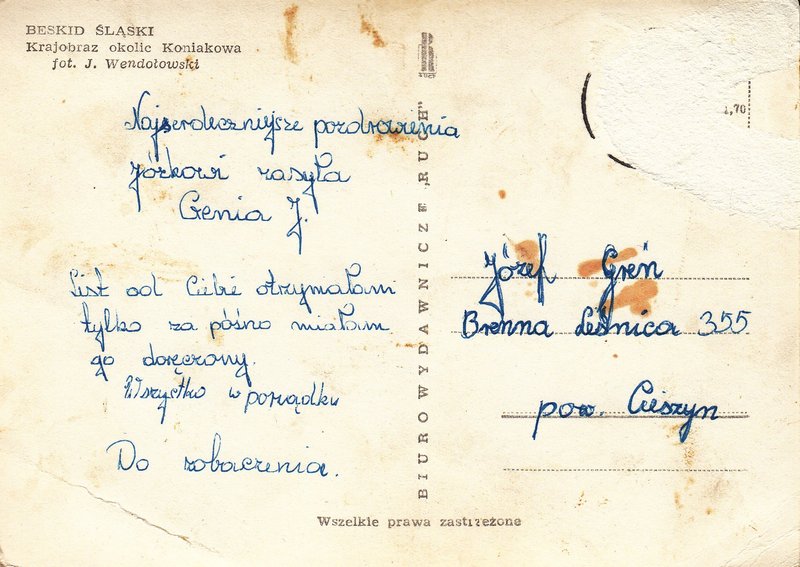 BESKID ŚLĄSKI
Krajobraz okolic Koniakowa
fot. J. Wendołowski
Najserdeczniejsze pozdrowienia
Józkowi zasyła
Genia J.
List od Ciebie otrzymałam
tylko za późno miałam
go doręczony.
Wszystko w porządku
Do zobaczenia.
BIURO WYDAWNICZE „RUCH"
RUCH
1,70
Józef Greń
Brenna Leśnica 355
pow. Cieszyn
Wszelkie prawa zastrzeżone